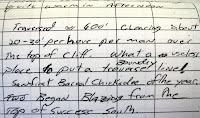 warm in Afternoon
Traversed ≈ 600' Clearing about
20-30' per hour per man over
the top of cliff. What a useless
Boundry
place to put a traverse line!
Saw first Boreal Chickadee of the year.
Began Blazing from the
top of success south.